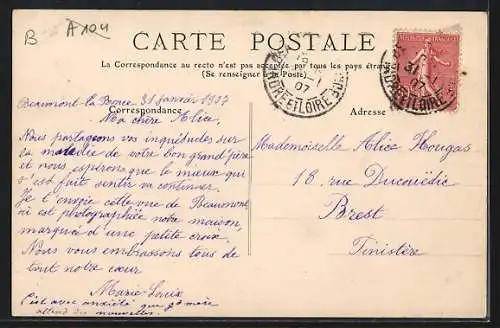 B A104
CARTE POSTALE
La Correspondance au recto n'est pas acceptée par tous les pays étrangers
(Se renseigner à la Poste)
RÉPUBLIQUE FRANÇAISE
31 1
07
INDRE-ET-LOIRE
Correspondance
Adresse
Beaumont-la-Ronce 31 janvier 1907
Ma chère Alice,
Nous partageons vos inquiétudes sur
la maladie de votre bon grand père
et nous espérons que le mieux qui
s'est fait sentir va continuer.
Je t'envoie cette vue de Beaumont
où est photographiée notre maison,
marquée d'une petite croix.
Nous vous embrassons tous de
tout notre cœur
Marie-Louise
C'est avec anxiété que gd mère
attend des nouvelles.
Mademoiselle Alice Hougas
18 rue Ducouëdic
Brest
Finistère